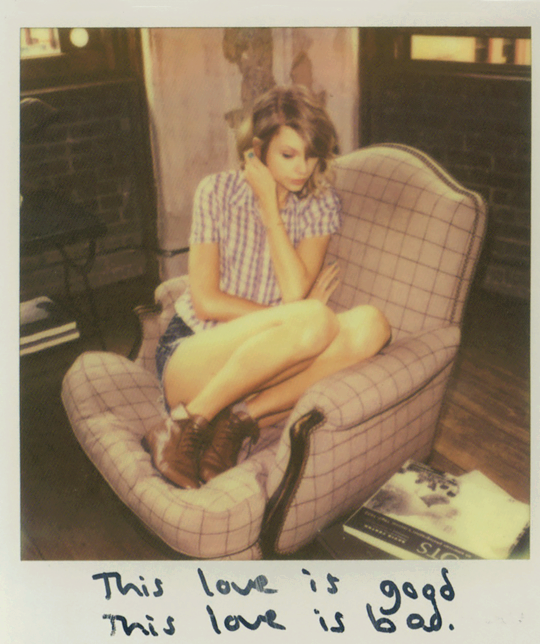 This love is good
This love is bad.